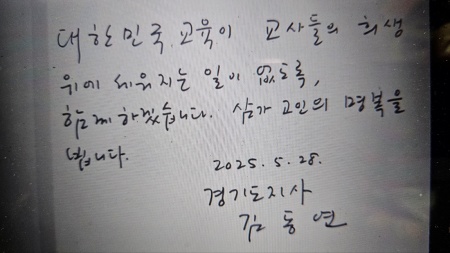 대한민국 교육이 교사들의 희생
위에 세워지는 일이 없도록,
함께하겠습니다. 삼가 고인의 명복을
빕니다.
2025. 5. 28.
경기도지사
김동연